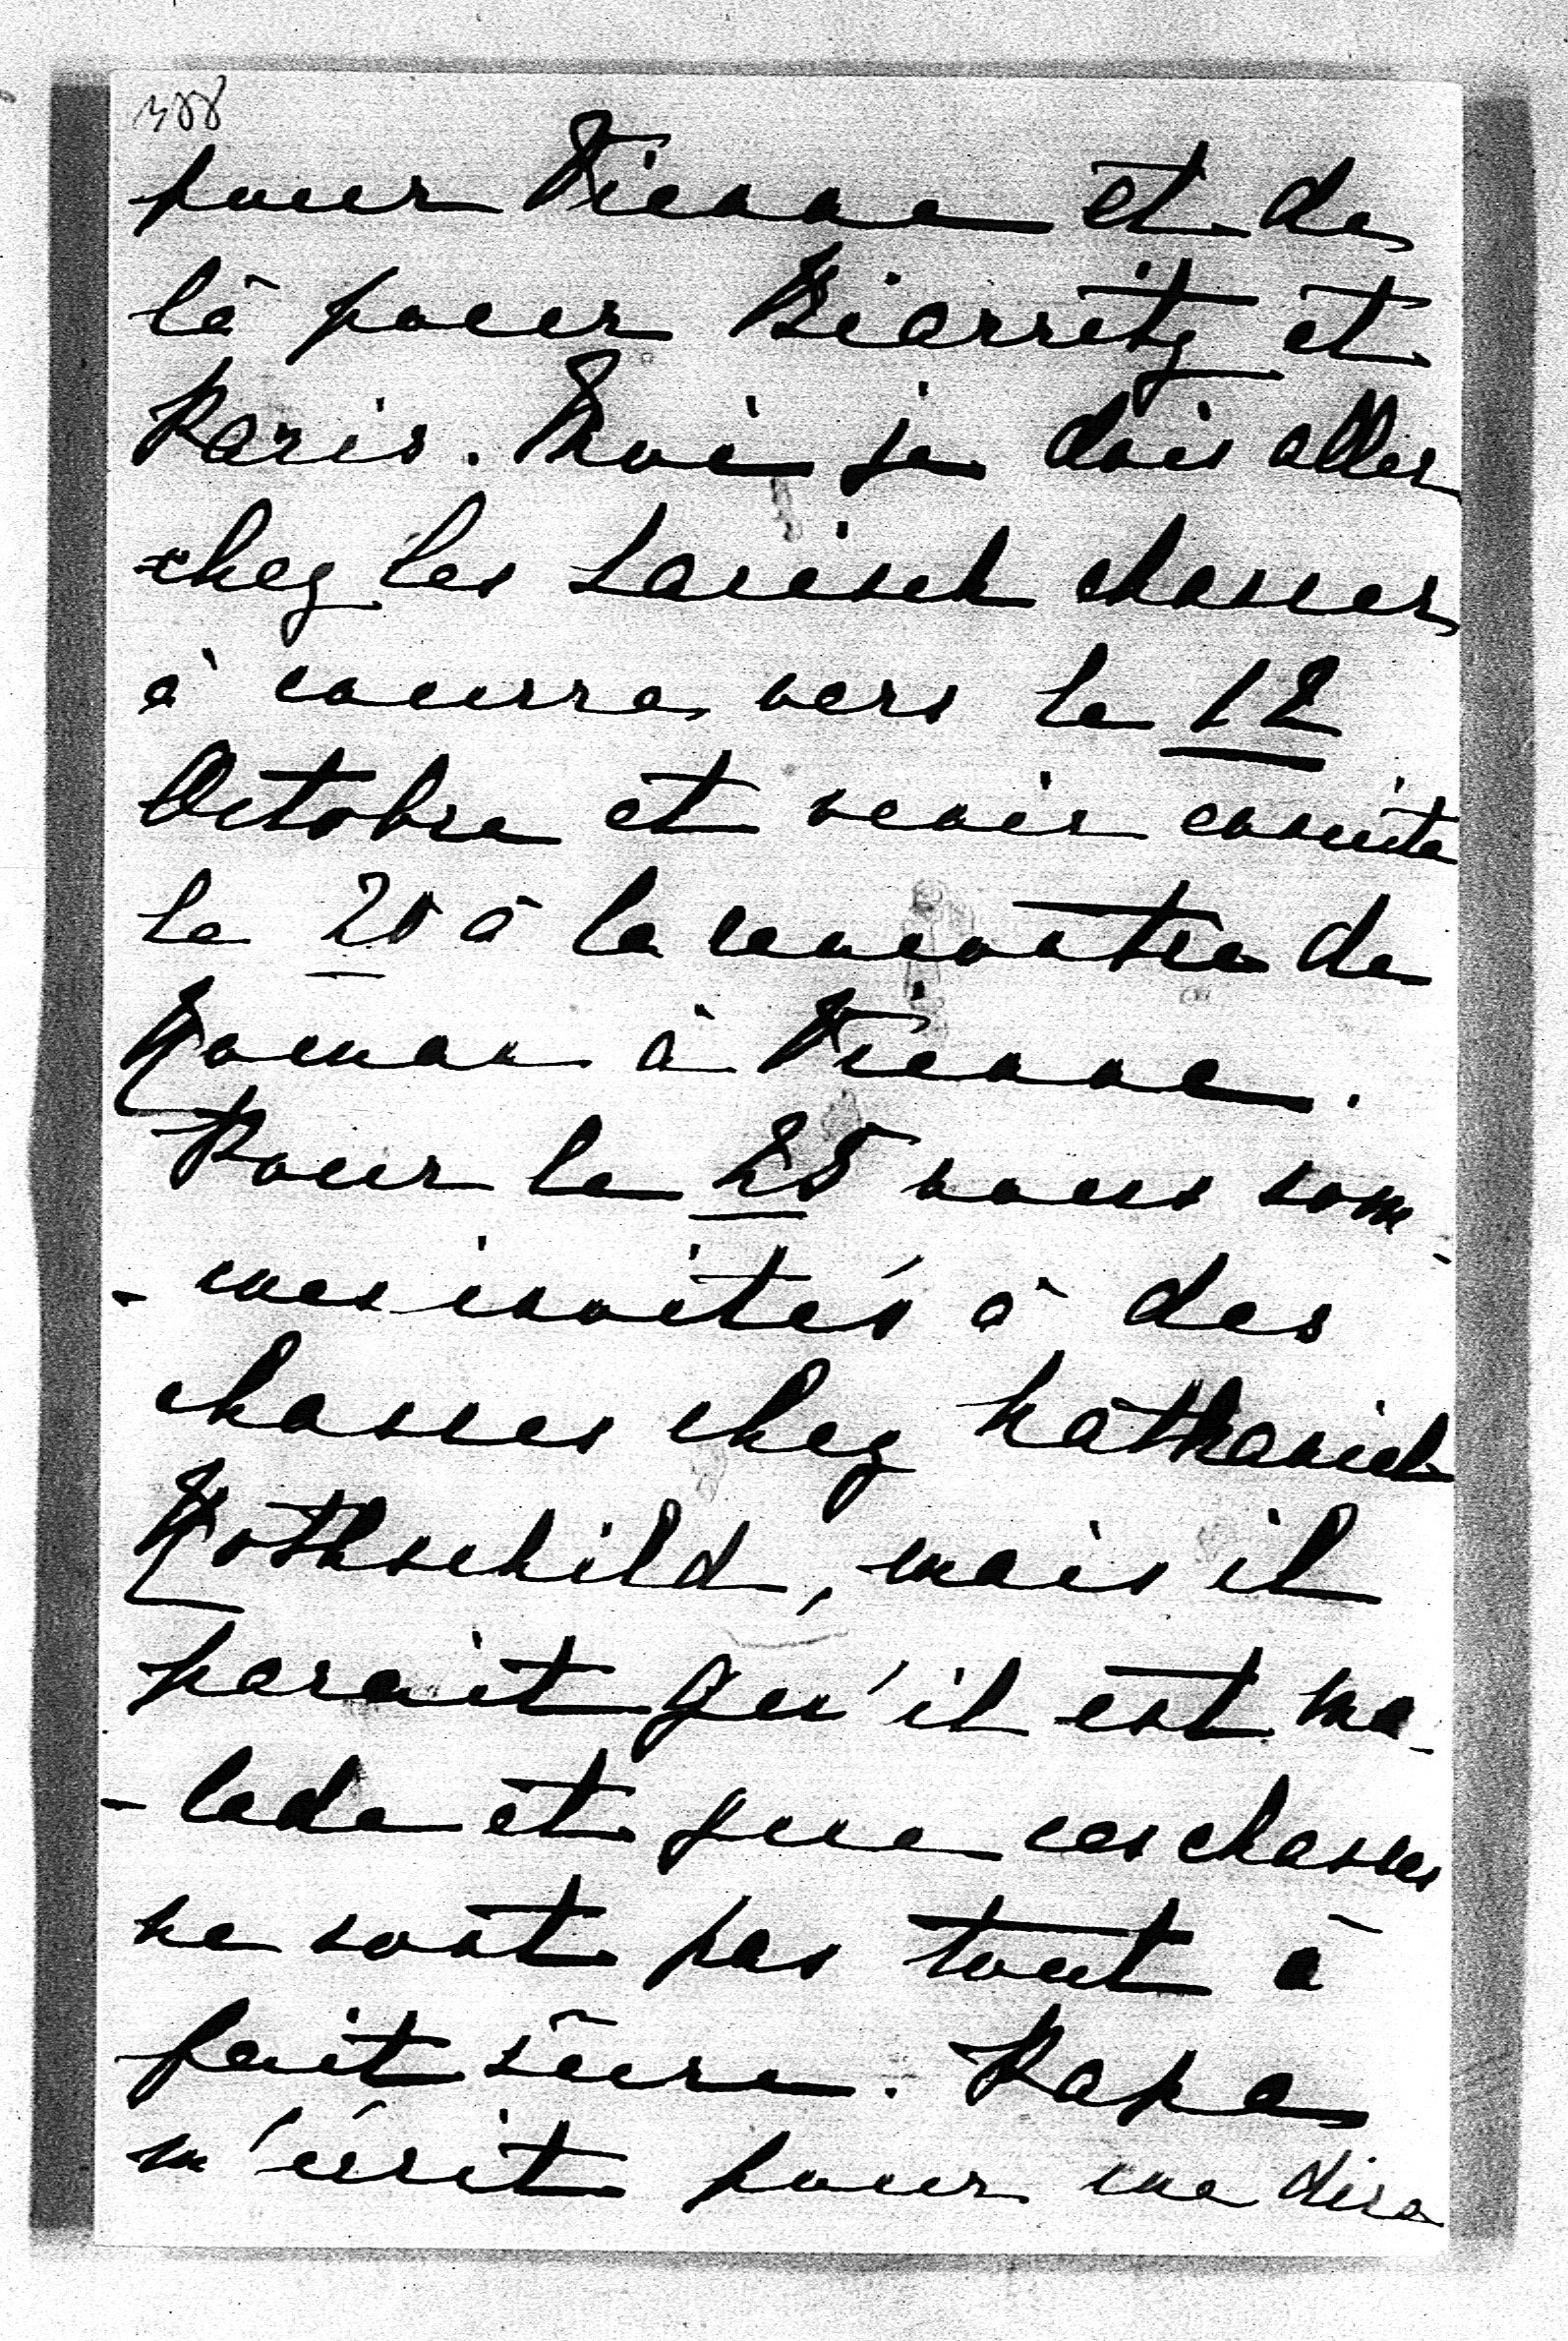 388
pour Vienne et de
là pour Biarritz et
Paris. Moi je dois aller
chez les Larisch chasser
à courre vers le 12
Octobre et venir ensuite
le 20 à la rencontre de
Roman à Vienne.
Pour le 25 nous som-
-mes invités à des
chasses chez Nathaniel
Rothschild, mais il
parait qu'il est ma-
-lade et que ces chasses
ne sont pas tout à
fait sûres. Papa
m'écrit pour me dire